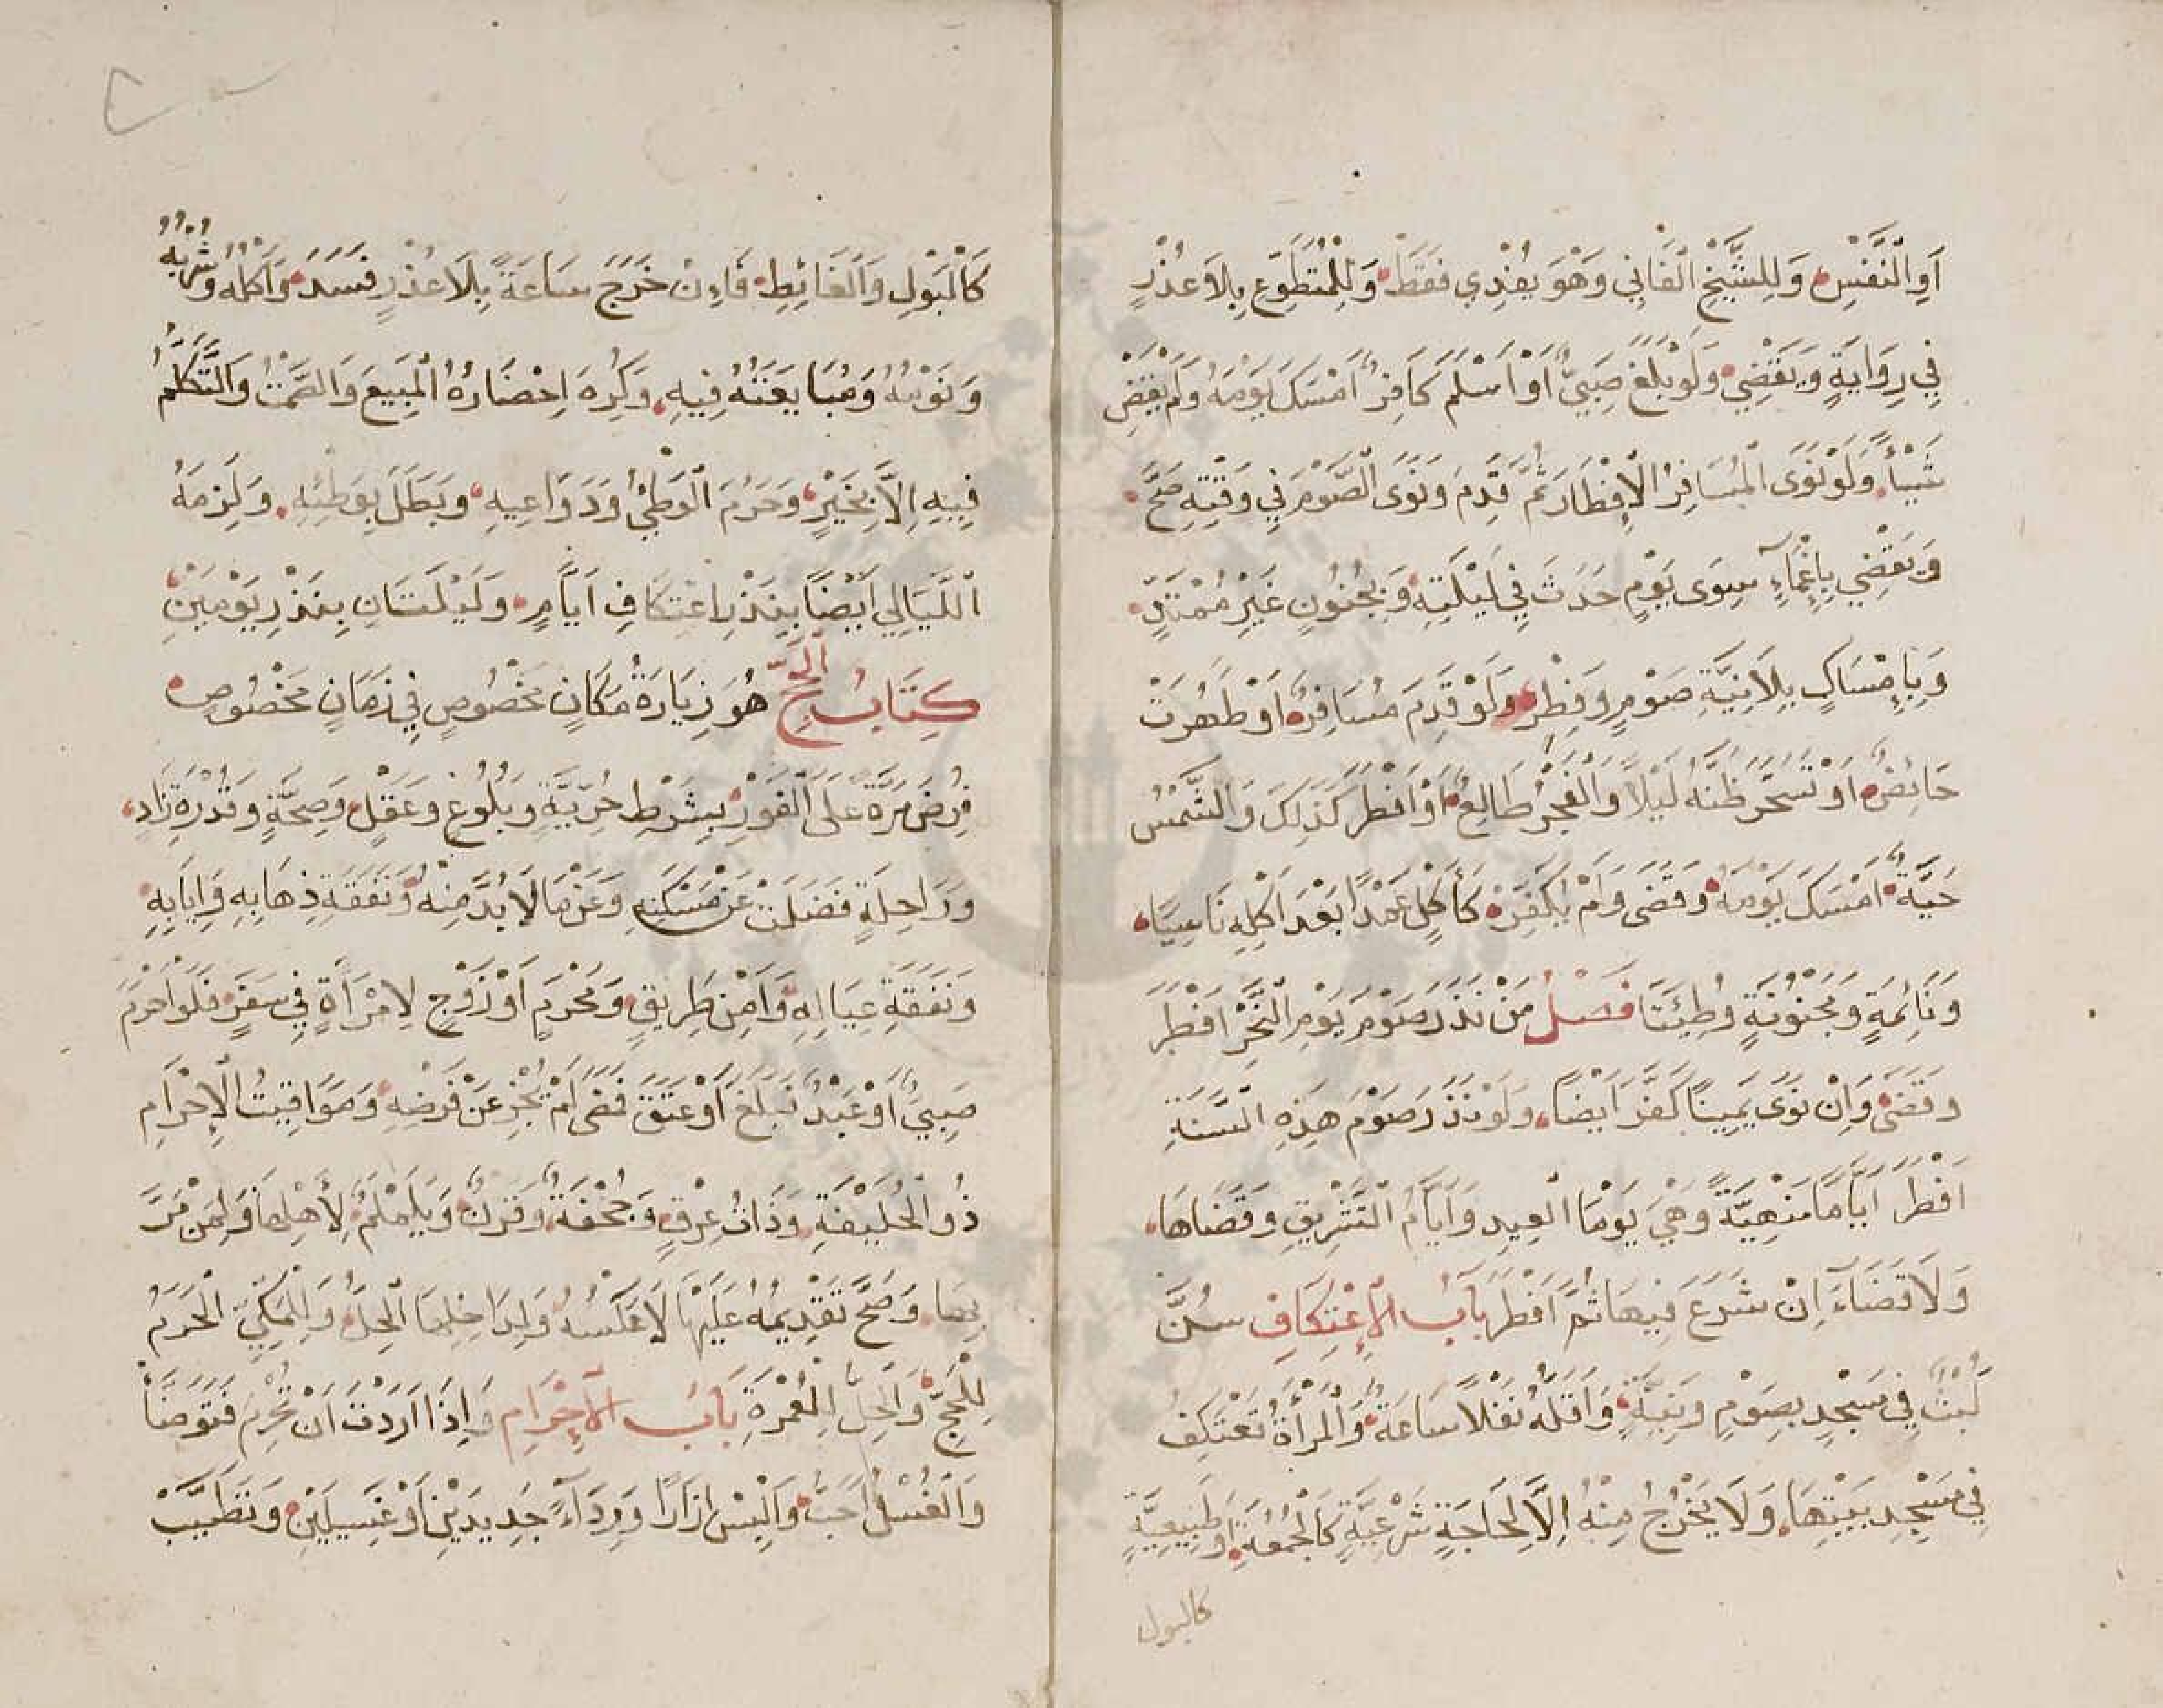 أَوِ النَّفْسِ وَلِلشَّيْخِ الْفَانِي وَهْوَ يَفْدِي فَقَطْ وَلِلْمُتَطَوِّعِ بِلَا عُذْرٍ
فِي رِوَايَةٍ وَيَقْضِي وَلَوْ بَلَغَ صَبِيٌّ أَوْ أَسْلَمَ كَافِرٌ أَمْسَكَ يَوْمَهُ وَلَمْ يَقْضِ
شَيْئًا وَلَوْ نَوَى الْمُسَافِرُ الْإِفْطَارَ ثُمَّ قَدِمَ وَنَوَى الصَّوْمَ فِي وَقْتِهِ صَحَّ
وَيَقْضِي بِإِغْمَاءٍ سِوَى يَوْمٍ حَدَثَ فِي لَيْلَتِهِ وَبِجُنُونٍ غَيْرِ مُمْتَدٍّ
وَبِإِمْسَاكٍ بِلَا نِيَّةِ صَوْمٍ وَفِطْرٍ وَلَوْ قَدِمَ مُسَافِرٌ أَوْ طَهُرَتْ
حَائِضٌ أَوْ تَسَحَّرَ ظَنَّهُ لَيْلًا وَالْفَجْرُ طَالِعٌ أَوْ أَفْطَرَ كَذَلِكَ وَالشَّمْسُ
حَيَّةٌ أَمْسَكَ يَوْمَهُ وَقَضَى وَلَمْ يُكَفِّرْ كَأَكْلٍ عَمْدًا بَعْدَ أَكْلِهِ نَاسِيًا
وَنَائِمَةٍ وَمَجْنُونَةٍ وُطِئَتَا فَصْلٌ مَنْ نَذَرَ صَوْمَ يَوْمِ النَّحْرِ أَفْطَرَ
وَقَضَى وَإِنْ نَوَى يَمِينًا كَفَّرَ أَيْضًا وَلَوْ نَذَرَ صَوْمَ هَذِهِ السَّنَةِ
أَفْطَرَ أَيَّامًا مَنْهِيَّةً وَهْيَ يَوْمَا الْعِيدِ وَأَيَّامُ التَّشْرِيقِ وَقَضَاهَا
وَلَا قَضَاءَ إِنْ شَرَعَ فِيهَا ثُمَّ أَفْطَرَ بَابُ الْإِعْتِكَافِ سُنَّ
لُبْثٌ فِي مَسْجِدٍ بِصَوْمٍ وَنِيَّةٍ وَأَقَلُّهُ نَفْلًا سَاعَةٌ وَالْمَرْأَةُ تَعْتَكِفُ
فِي مَسْجِدِ بَيْتِهَا وَلَا يَخْرُجُ مِنْهُ إِلَّا لِحَاجَةٍ شَرْعِيَّةٍ كَالْجُمُعَةِ أَوْ طَبِيعِيَّةٍ
كالبول
كَالْبَوْلِ وَالْغَائِطِ فَإِنْ خَرَجَ سَاعَةً بِلَا عُذْرٍ فَسَدَ وَأَكْلُهُ وَشُرْبُهُ
وَنَوْمُهُ وَمُبَايَعَتُهُ فِيهِ وَكُرِهَ إِحْضَارُهُ الْمَبِيعَ وَالصَّمْتُ وَالتَّكَلُّمُ
فِيهِ إِلَّا بِخَيْرٍ وَحَرُمَ الْوَطْئُ وَدَوَاعِيهِ وَبَطَلَ بِوَطْئِهِ وَلَزِمَهُ
اللَّيَالِي أَيْضًا بِنَذْرِ اعْتِكَافِ أَيَّامٍ وَلَيْلَتَانِ بِنَذْرِ يَوْمَيْنِ
كِتَابُ الْحَجِّ هُوَ زِيَارَةُ مَكَانٍ مَخْصُوصٍ فِي زَمَانٍ مَخْصُوصٍ
فُرِضَ مَرَّةً عَلَى الْفَوْرِ بِشَرْطِ حُرِّيَّةٍ وَبُلُوغٍ وَعَقْلٍ وَصِحَّةٍ وَقُدْرَةِ زَادٍ
وَرَاحِلَةٍ فَضَلَتْ عَنْ مَسْكَنِهِ وَعَنْ مَا لَا بُدَّ مِنْهُ وَنَفَقَةِ ذِهَابِهِ وَإِيَابِهِ
وَنَفَقَةِ عِيَالِهِ وَأَمْنِ طَرِيقٍ وَمَحْرَمٍ أَوْ زَوْجٍ لِامْرَأَةٍ فِي سَفَرٍ فَلَوْ أَحْرَمَ
صَبِيٌّ أَوْ عَبْدٌ فَبَلَغَ أَوْ عَتَقَ فَمَضَى لَمْ يُجْزِ عَنْ فَرْضِهِ وَمَوَاقِيتُ الْإِحْرَامِ
ذُو الْحُلَيْفَةِ وَذَاتُ عِرْقٍ وَجُحْفَةٌ وَقَرْنٌ وَيَلَمْلَمُ لِأَهْلِهَا وَلِمَنْ مَرَّ
بِهَا وَصَحَّ تَقْدِيمُهُ عَلَيْهَا لَا عَكْسُهُ وَلِدَاخِلِهَا الْحِلُّ وَلِلْمَكِّيِّ الْحَرَمُ
لِلْحَجِّ وَالْحِلُّ لِلْعُمْرَةِ بَابُ الْإِحْرَامِ وَإِذَا أَرَدْتَ أَنْ تُحْرِمَ فَتَوَضَّأْ
وَالْغُسْلُ أَحَبُّ وَالْبَسْ إِزَارًا وَرِدَاءً جَدِيدَيْنِ أَوْ غَسِيلَيْنِ وَتَطَيَّبْ